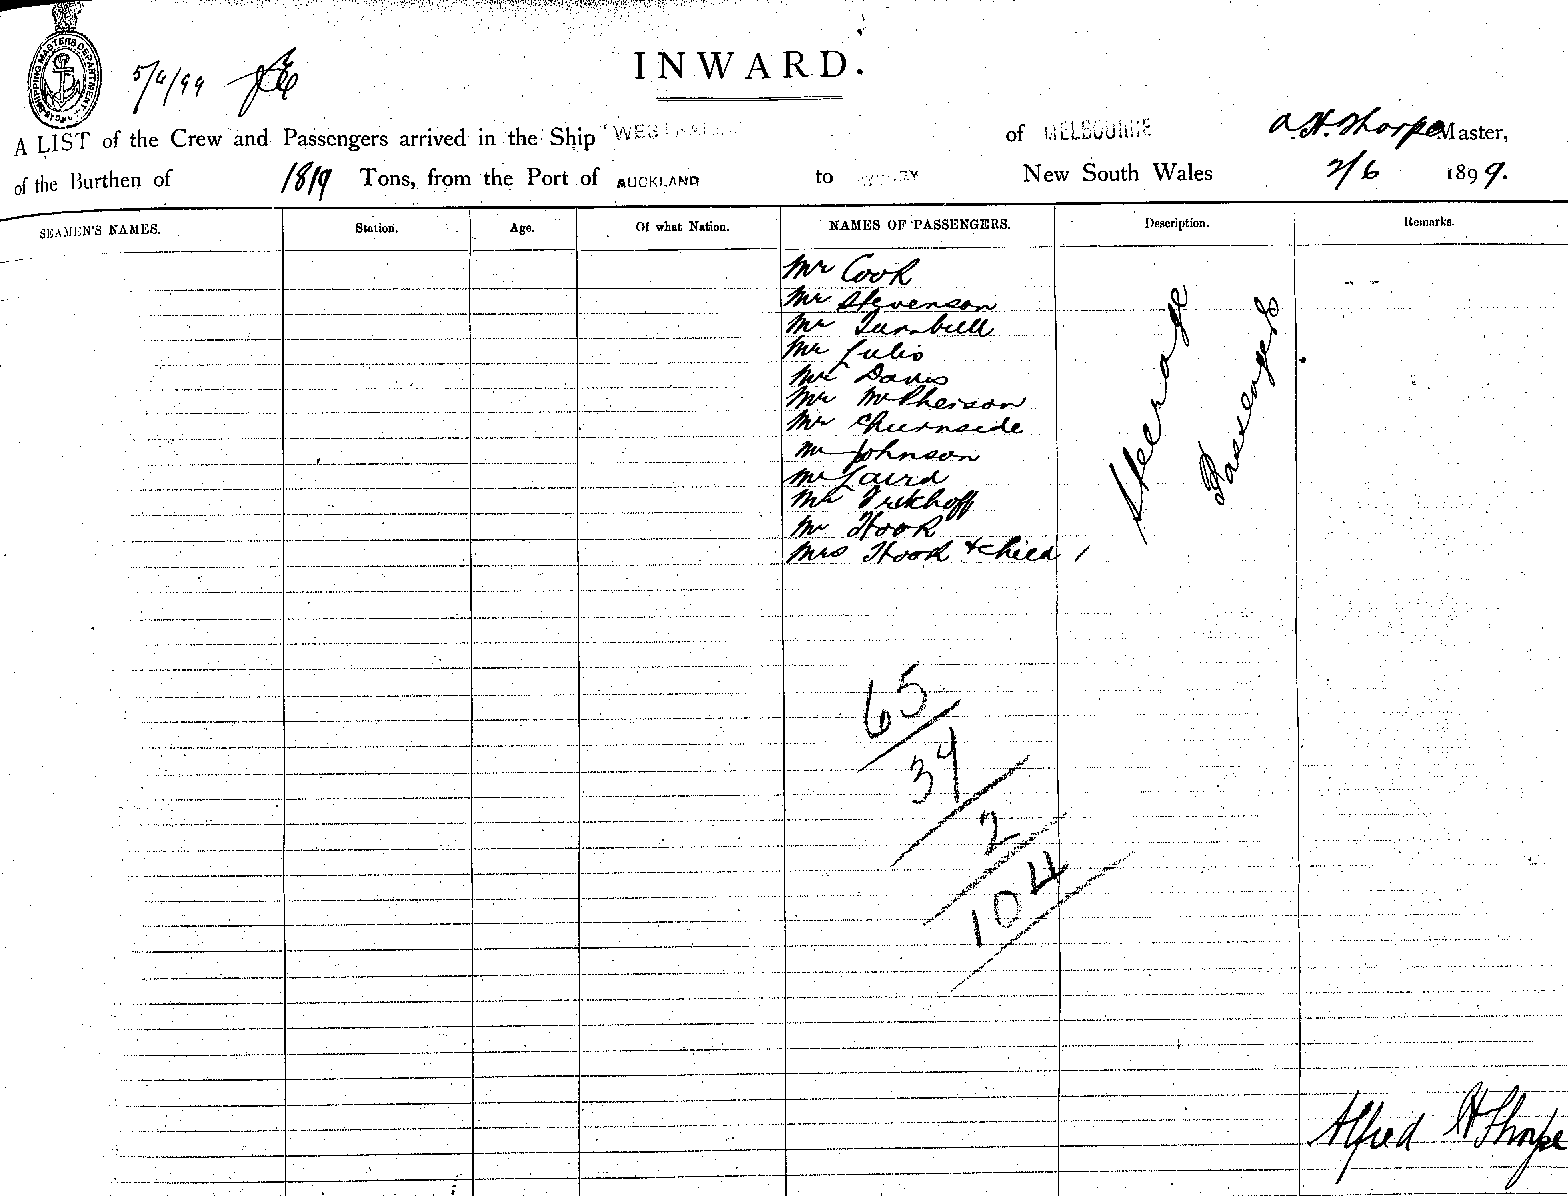 INWARD.
5/6/99
A LIST of the Crew and Passengers arrived in the Ship "WESTRALIA" of MELBOURNE A. H. Thorpe Master,
of the Burthen of 1819 Tons, from the Port of AUCKLAND to SYDNEY New South Wales 2/6 1899.
SEAMEN'S NAMES. Station. Age. Of what Nation. NAMES OF PASSENGERS. Description. Remarks.
Mr Cook
Mr Stevenson
Mr Turnbull
Mr Davis
Mr McPherson
Mr Churnside
Mr Johnson
Mr Laird
Mr Hook
Mrs Hook + child 1
Steerage
Passengers
65
34
2
104
Alfred H Thorpe